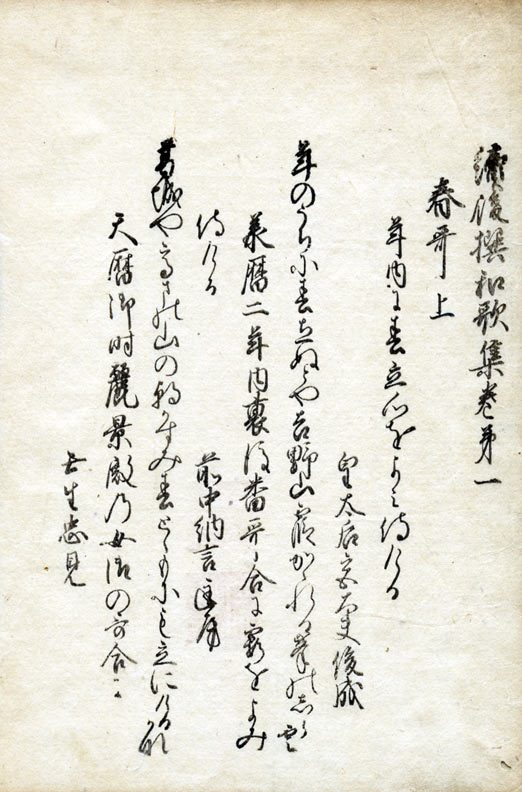 續後撰和歌集巻第一
春哥上
年内に春立心をよみ侍ける
皇太后宮大夫俊成
年のうちに春立ぬとや吉野山霞かゝれる峯のしら雪
承暦二年内裏後番哥合に霞をよみ
侍ける 前中納言匡房
葛城や高まの山の朝かすみ春とゝもにも立にける哉
天暦御時麗景殿乃女御の哥合に
壬生忠見